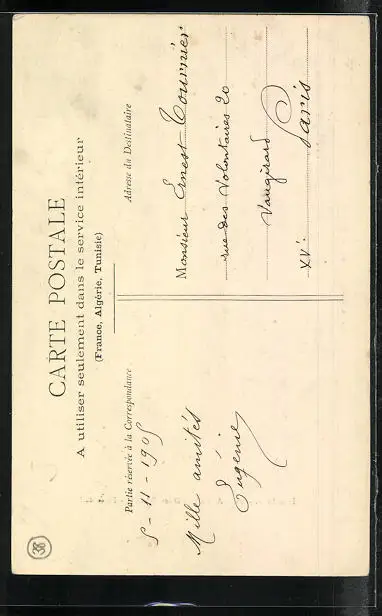 CARTE POSTALE
A utiliser seulement dans le service intérieur
(France, Algérie, Tunisie)
Partie réservée à la Correspondance
5-11-1905
Mille amitiés
Eugénie
Adresse du Destinataire
Monsieur Ernest Tournier
rue des Volontaires 20
Vaugirard
XVe Paris
38